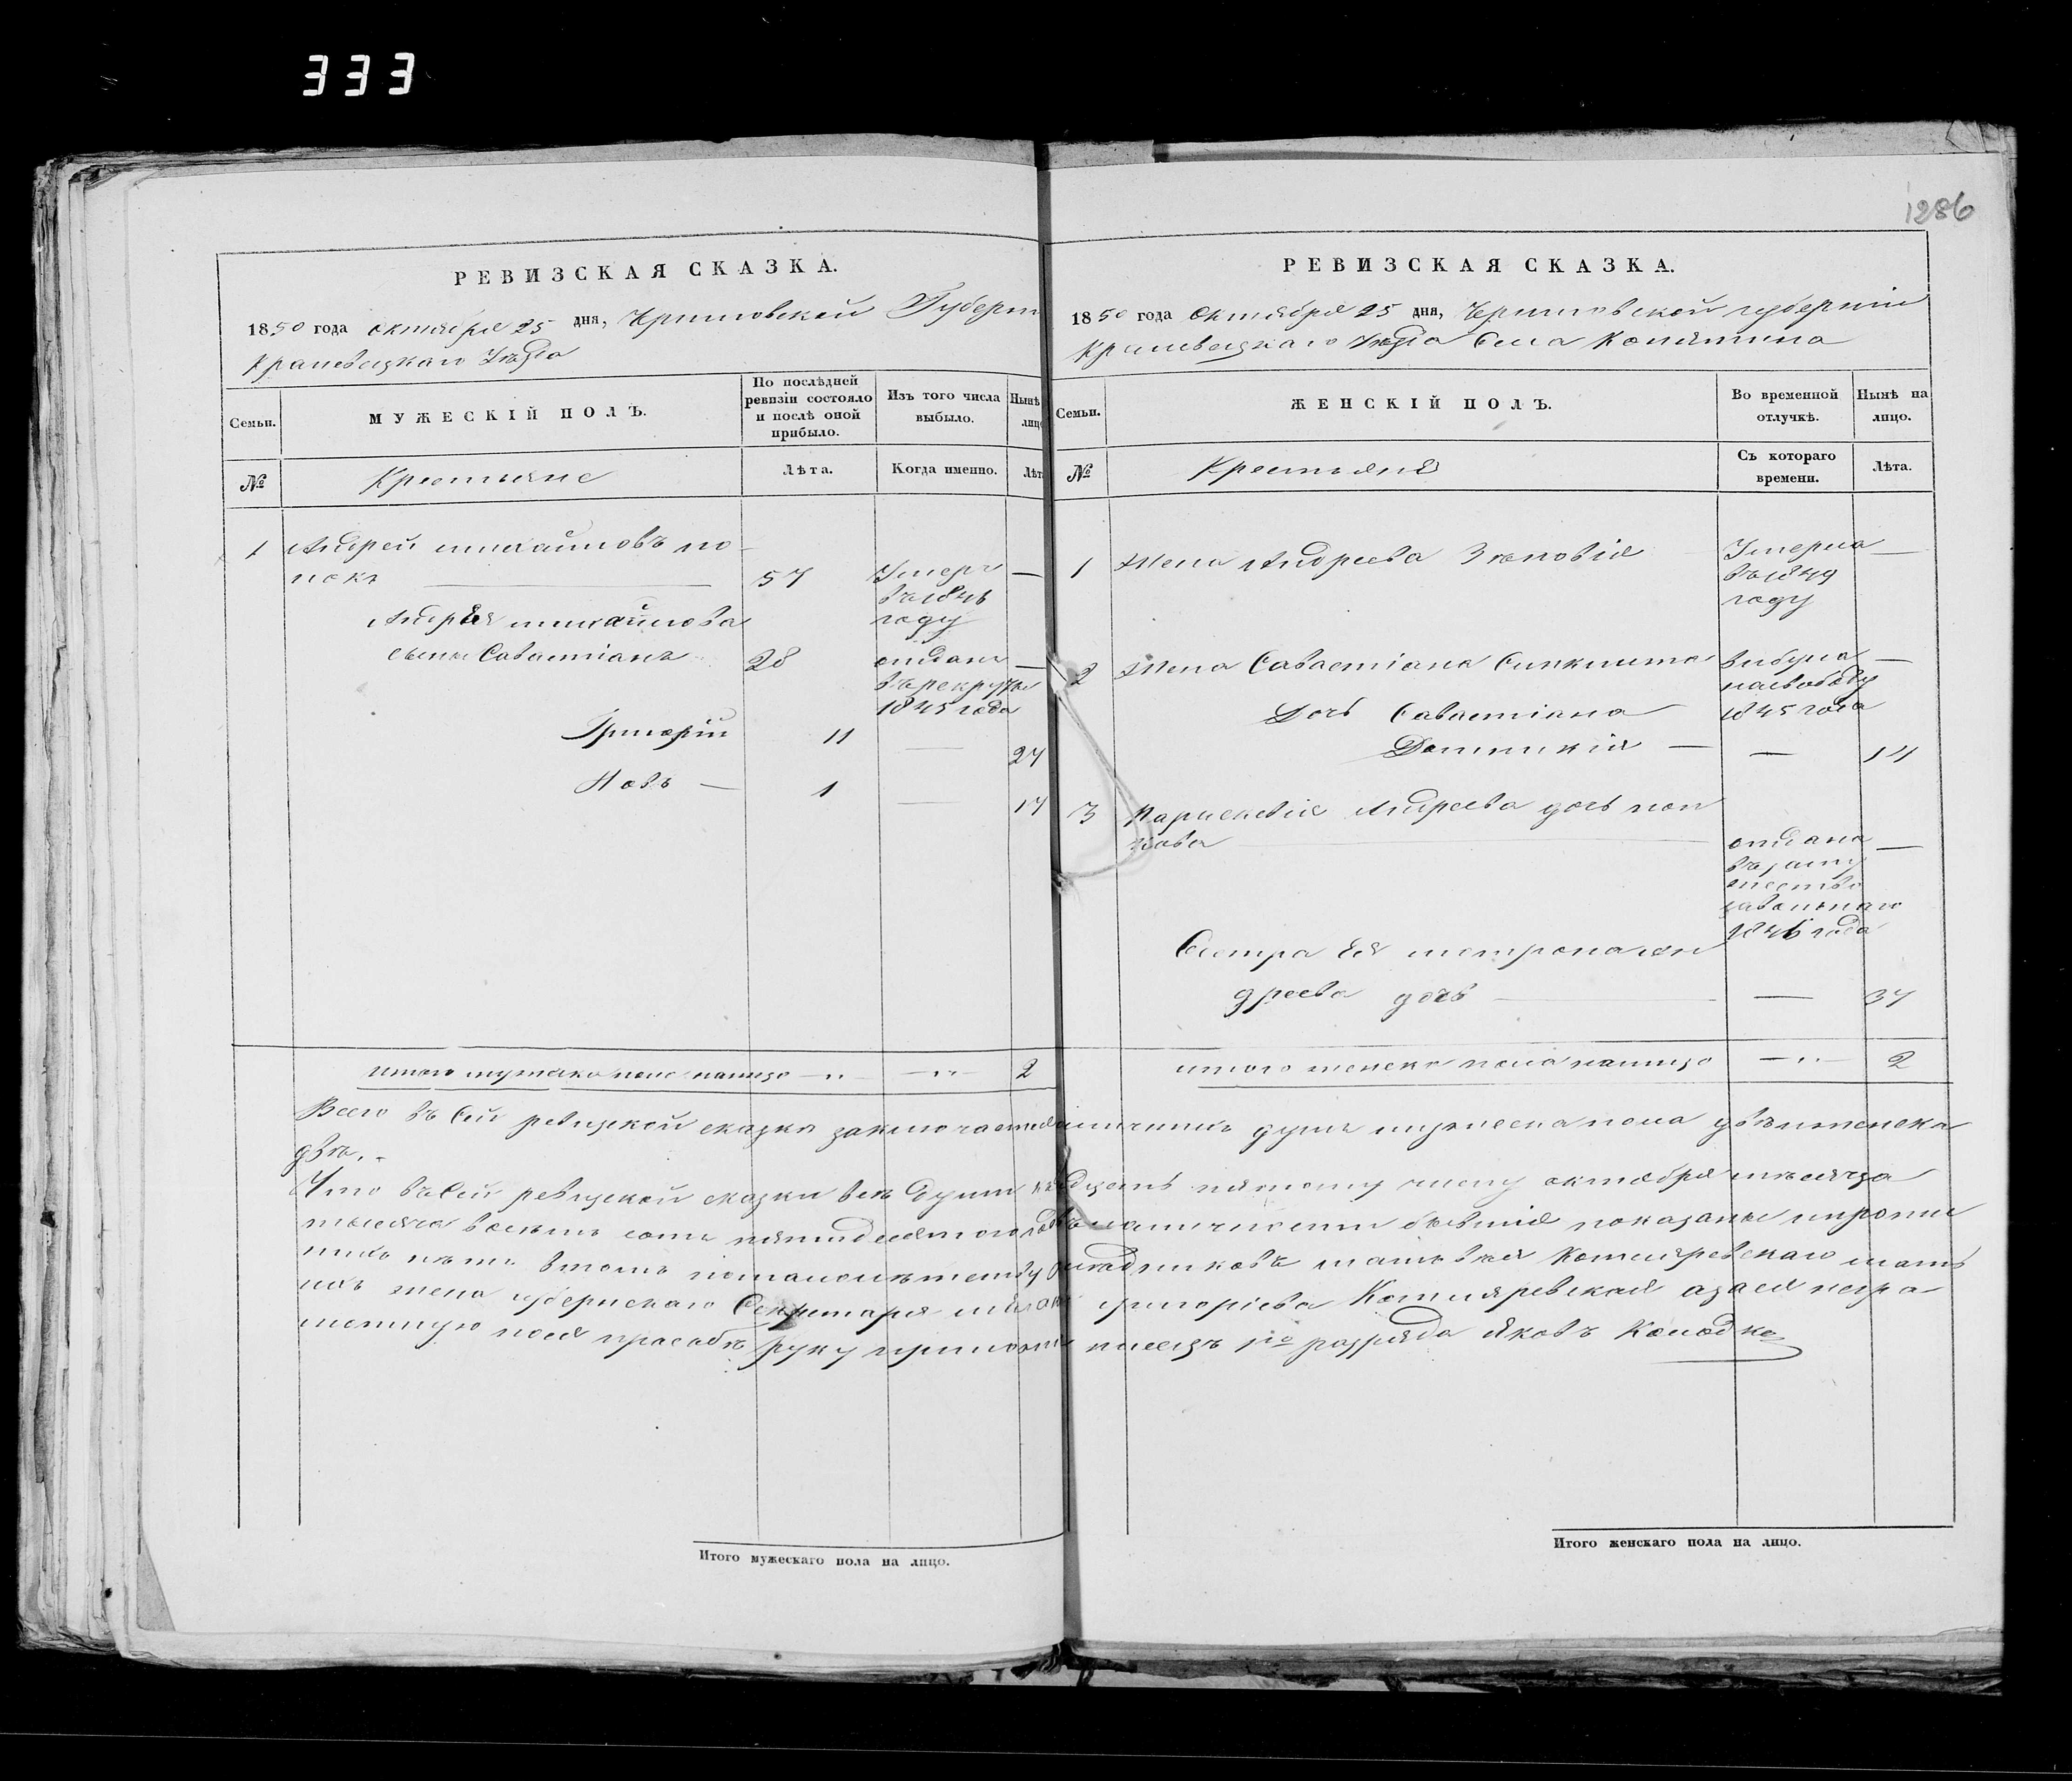 333
1286
РЕВИЗСКАЯ СКАЗКА.
1850 года октября 25 дня, Черниговской Губерн
Кралевецкаго Уѣзда
Семьи.
МУЖЕСКІЙ ПОЛЪ.
По послѣдней ревизіи состояло и послѣ оной прибыло.
Изъ того числа выбыло.
Нынѣ лицо
№
Крестьяне
Лѣта.
Когда именно.
Лѣт
1 Андрей Михайловъ по-
покъ 57 Умеръ —
въ 1846
году
Андрея Михайлова
сынъ Савастіанъ 28 отданъ —
въ рекруты
1845 года
Григорій 11 — 27
Іовъ — 1 — 17
итого мужска пола налицо — „ — „ — 2
РЕВИЗСКАЯ СКАЗКА.
1850 года Октября 25 дня, Черниговской губерніи
Кралевецкаго Уѣзда Села Конятина
Семьи.
ЖЕНСКІЙ ПОЛЪ.
Во временной отлучкѣ.
Нынѣ на лицо.
№
Крестьяне
Съ котораго времени.
Лѣта.
1 Жена Андреева Зѣновія Умерла —
въ 1849
году
2 Жена Савастіана выбула —
насвободу
Дочь Савастіана 1845 года
Домникія — — 14
3 Параскевія Андреева дочь поп
кова отдана —
въ заму
жество
1846 года
Сестра Ея Метрона Ан
дреева дочь — 37
итого женска пола налицо — „ — 2
Всего въ сей ревизской сказки заключается наличнихъ душъ мужеска пола двѣ и женска
двѣ. -
Что въ сей ревизской сказки всѣ души къ двадцать пятому числу октября мѣсяца
тысяча восемъ сотъ пятидесятого года въ наличности бывшія показаны и пропис
нихъ нѣтъ втомъ Матвѣя Котляревскаго мать
ихъ жена губернскаго Секретаря Григоріева Котляревская а за ея негра-
мотную поея прозбѣ руку приложилъ писецъ 1го разряда Яковъ Колодко
Итого мужескаго пола на лицо.
Итого женскаго пола на лицо.